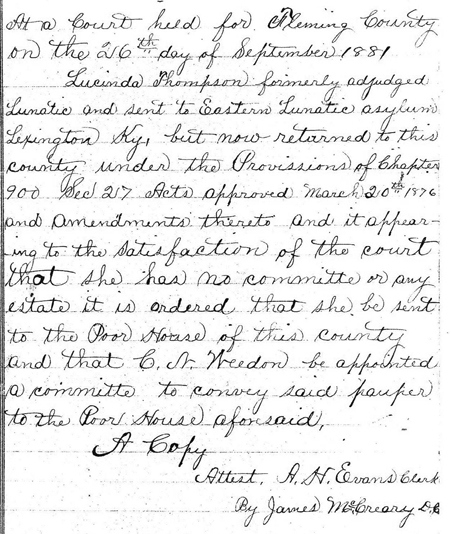 At a Court held for Fleming County
on the 26th day of September 1881
Lucinda Thompson formerly adjudged
Lunatic and sent to Eastern Lunatic asylum
Lexington Ky, but now returned to this
county under the Provisions of Chapter
900 Sec 217 Acts approved March 20th 1876
and Amendments thereto and it appear-
-ing to the satisfaction of the court
that she has no committe or any
estate it is ordered that she be sent
to the Poor House of this county
and that C. N. Weedon be appointed
a committe to convey said pauper
to the Poor House aforesaid,
A Copy
Attest. A. H. Evans Clerk
By James McCreary D.C